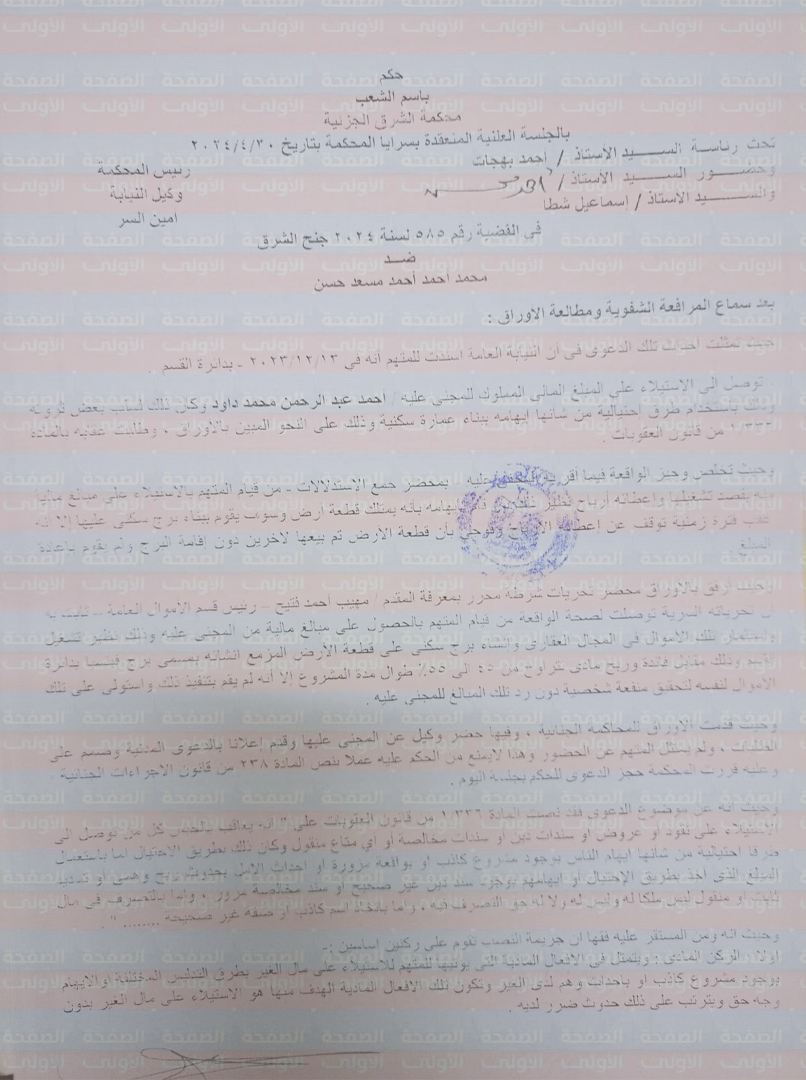 حكم
باسم الشعب
محكمة الشرق الجزئية
بالجلسة العلنية المنعقدة بسرايا المحكمة بتاريخ ٢٠٢٤/٤/٣٠
تحت رئاسة الســـيد الاستاذ / احمد بهجات رئيس المحكمة
وحضـــور السيد الاستاذ / وكيل النيابة
والســـيد الاستاذ / اسماعيل شطا امين السر
فى القضية رقم ٥٨٥ لسنة ٢٠٢٤ جنح الشرق
ضـــد
محمد احمد أحمد مسعد حسن
بعد سماع المرافعة الشفوية ومطالعة الاوراق :
حيث تمثلت أحداث تلك الدعوى فى أن النيابة العامة اسندت للمتهم أنه فى ٢٠٢٣/١٢/١٣ - بدائرة القسم .
توصل الى الاستيلاء على المبلغ المالى المملوك للمجنى عليه / أحمد عبد الرحمن محمد داود وكان ذلك لسلب بعض ثروته
وذلك باستخدام طرق إحتيالية من شأنها ايهامه ببناء عمارة سكنية وذلك على النحو المبين بالأوراق ، وطلبت عقابه بالمادة
من قانون العقوبات .
وحيث تخلص وجيز الواقعة فيما أقر به المجنى عليه بمحضر جمع الاستدلالات - من قيام المتهم بالاستيلاء على مبالغ مالية
منه بقصد تشغيلها وإعطائه أرباح نظير بأنه يمتلك قطعة أرض وسوف يقوم ببناء برج سكنى عليها إلا أنه
عقب فترة زمنية توقف عن إعطائه الارباح وفوجئ بأن قطعة الارض تم بيعها لاخرين دون إقامة البرج ولم يقوم باعادة
المبلغ
وحيث أرفق بالاوراق محضر تحريات شرطة محرر بمعرفة المقدم / مهيب أحمد فتيح - رئيس قسم الاموال العامة -
أن تحرياته السرية توصلت لصحة الواقعه من قيام المتهم بالحصول على مبالغ مالية من المجنى عليه وذلك نظير تشغيل
واستثمار تلك الاموال فى المجال العقارى وانشاء برج سكنى على قطعة الأرض المزمع انشائه بمسمى برج بدائرة
القسم وذلك مقابل فائدة وربح مادى تتراوح من ٤٥ الى ٥٥٪ طوال مدة المشروع إلا أنه لم يقم بتنفيذ ذلك واستولى على تلك
الاموال لنفسه لتحقيق منفعة شخصية دون رد تلك المبالغ للمجنى عليه .
وحيث قدمت الاوراق للمحاكمة الجنائية ، وفيها حضر وكيل عن المجنى عليها وقدم إعلانا بالدعوى المدنية وصمم على
الطلبات ، ولم يمثل المتهم عن الحضور وهذا لايمنع من الحكم عليه عملا بنص المادة ٢٣٨ من قانون الاجراءات الجنائية .
وعليه قررت المحكمة حجز الدعوى للحكم بجلسة اليوم .
وحيث أنه عن موضوع الدعوى فقد نصت المادة ١/٣٣٦ من قانون العقوبات على " أنه يعاقب بالحبس كل من توصل الى
الإستيلاء على نقود او عروض أو سندات دين او سندات مخالصة أو اي متاع منقول وكان ذلك بطريق الإحتيال اما باستعمال
طرقا احتيالية من شأنها ايهام الناس بوجود مشروع كاذب او بواقعة مزورة او احداث الامل بحدوث ربح وهمي أو تسديد
المبلغ الذي أخذ بطريق الإحتيال أو ايهامهم بوجود سند دين غير صحيح او سند مخالصة مزور ، وإما بالتصرف فى مال
ثابت او منقول ليس ملكا له وليس له ولا له حق التصرف فيه ، وإما باتخاذ اسم كاذب أو صفة غير صحيحة ........ " .
وحيث أنه ومن المستقر عليه فقها ان جريمة النصب تقوم على ركنين اساسين :-
اولا: الركن المادى : ويتمثل فى الافعال المادية التى يؤتيها المتهم للاستيلاء على مال الغير بطرق التدليس المختلفة او الايهام
بوجود مشروع كاذب او بإحداث وهم لدى الغير وتكون تلك الافعال المادية الهدف منها هو الاستيلاء على مال الغير بدون
وجه حق ويترتب على ذلك حدوث ضرر لديه .